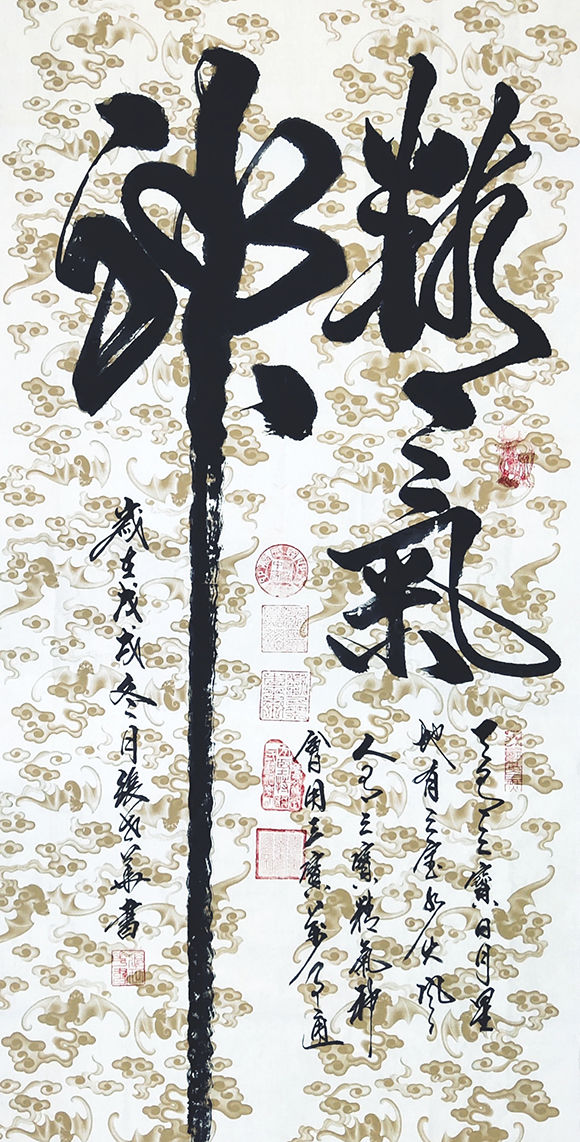 精氣
神
天有三寶日月星
地有三宝水火風
人有三寶精氣神
會用三寶萬事通
歲在戊戌冬月張華書